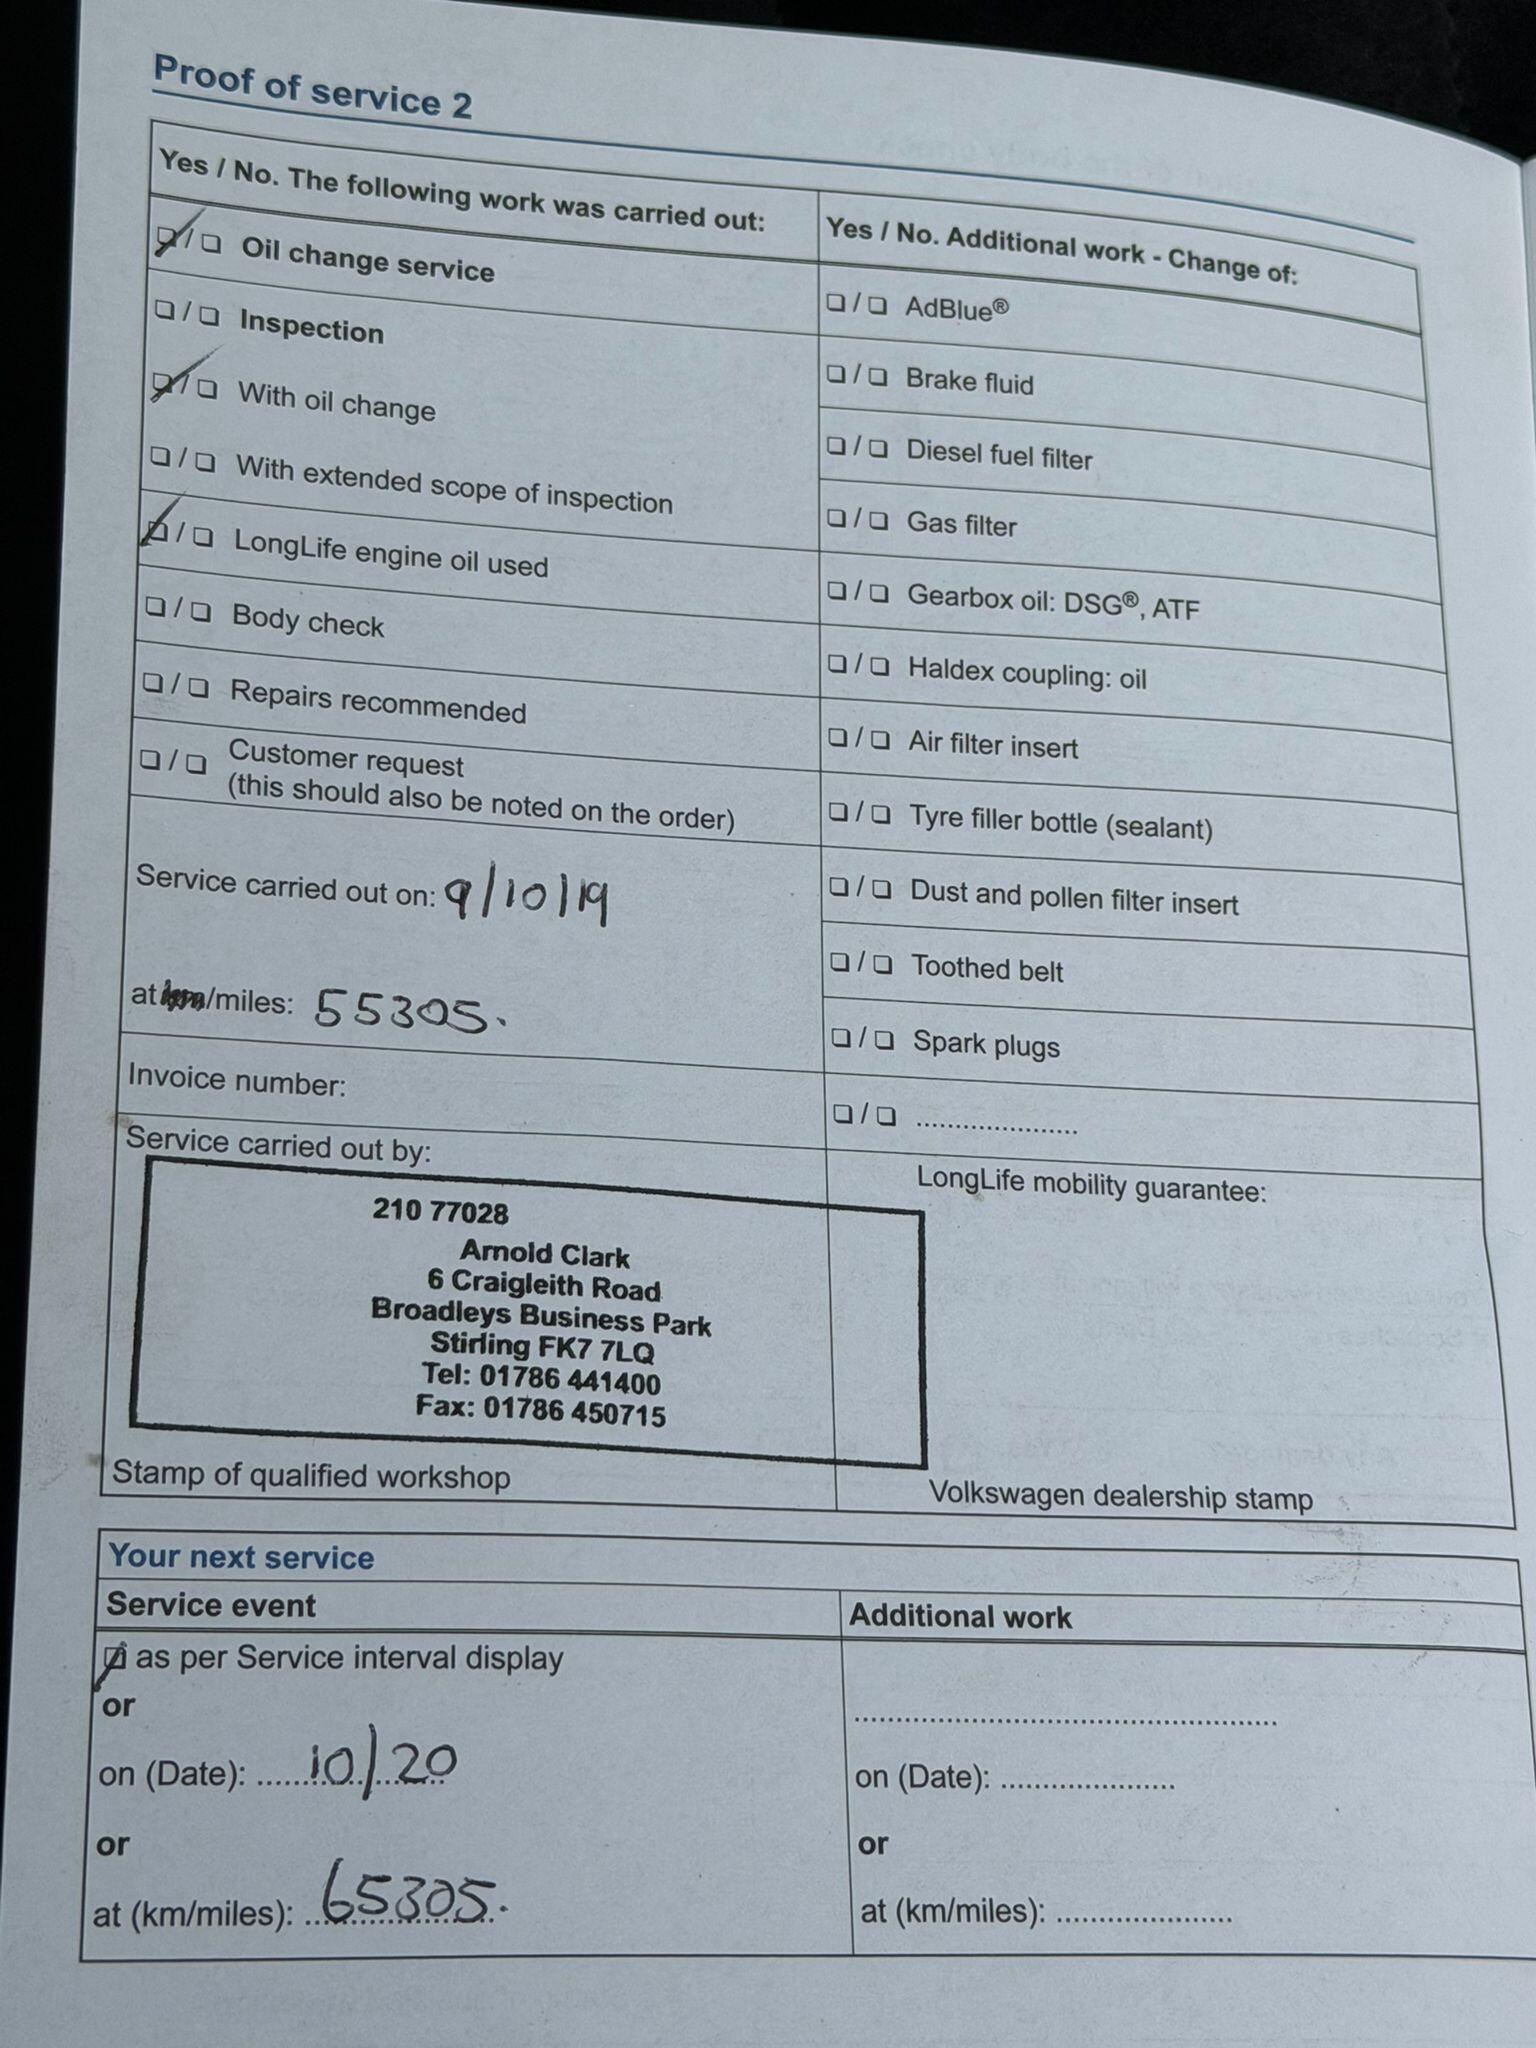 Proof of service 2
Yes / No. The following work was carried out:
☑ / ☐ Oil change service
☐ / ☐ Inspection
☑ / ☐ With oil change
☐ / ☐ With extended scope of inspection
☑ / ☐ LongLife engine oil used
☐ / ☐ Body check
☐ / ☐ Repairs recommended
☐ / ☐ Customer request
(this should also be noted on the order)
Service carried out on: 9/10/19
at km/miles: 55305.
Invoice number:
Service carried out by:
210 77028
Arnold Clark
6 Craigleith Road
Broadleys Business Park
Stirling FK7 7LQ
Tel: 01786 441400
Fax: 01786 450715
Stamp of qualified workshop
Yes / No. Additional work - Change of:
☐ / ☐ AdBlue®
☐ / ☐ Brake fluid
☐ / ☐ Diesel fuel filter
☐ / ☐ Gas filter
☐ / ☐ Gearbox oil: DSG®, ATF
☐ / ☐ Haldex coupling: oil
☐ / ☐ Air filter insert
☐ / ☐ Tyre filler bottle (sealant)
☐ / ☐ Dust and pollen filter insert
☐ / ☐ Toothed belt
☐ / ☐ Spark plugs
☐ / ☐ .....................
LongLife mobility guarantee:
Volkswagen dealership stamp
Your next service
Service event
☑ as per Service interval display
or
on (Date): 10/20
or
at (km/miles): 65305.
Additional work
.......................................................
on (Date): .......................
or
at (km/miles): .......................